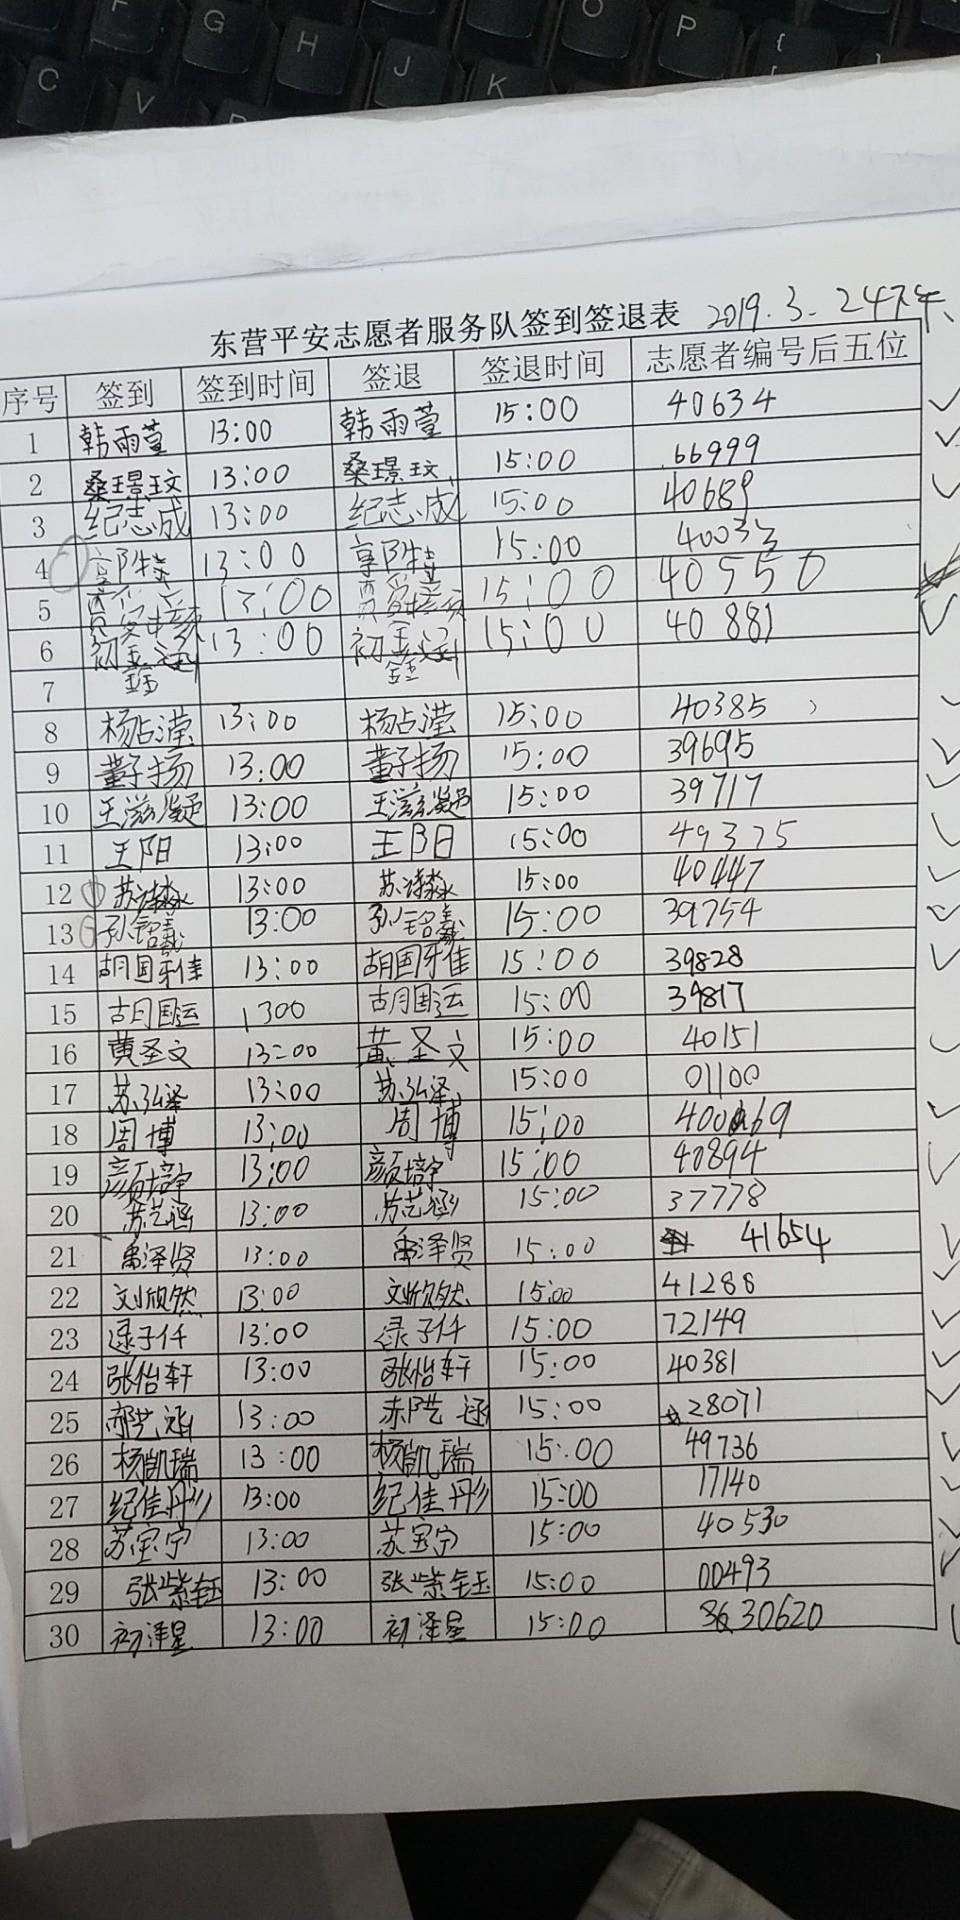 F G H J K O P { [
C V
东营平安志愿者服务队签到签退表 2019.3.24下午
序号 签到 签到时间 签退 签退时间 志愿者编号后五位
1 韩雨萱 13:00 韩雨萱 15:00 40634
2 桑璟玟 13:00 桑璟玟 15:00 66999
3 纪志成 13:00 纪志成 15:00 40689
4 13:00 15:00 40033
5 13:00 15:00 40550
6 初鑫涵 13:00 初鑫涵 15:00 40881
7
8 杨占滢 13:00 杨占滢 15:00 40385
9 董子扬 13:00 董子扬 15:00 39695
10 王滋凝 13:00 王滋凝 15:00 39717
11 王阳 13:00 王阳 15:00 49375
12 苏沣淼 13:00 苏沣淼 15:00 40447
13 孙铭羲 13:00 孙铭羲 15:00 39754
14 胡国雅 13:00 胡国雅 15:00 39828
15 胡国运 1300 胡国运 15:00 39817
16 黄圣文 13:00 黄圣文 15:00 40151
17 苏弘泽 13:00 苏弘泽 15:00 01100
18 周博 13:00 周博 15:00
19 颜培宇 13:00 颜培宇 15:00 40894
20 苏艺涵 13:00 苏艺涵 15:00 37778
21 禹泽贤 13:00 禹泽贤 15:00 41654
22 刘欣然 13:00 刘欣然 15:00 41288
23 逯子仟 13:00 逯子仟 15:00 72149
24 张怡轩 13:00 张怡轩 15:00 40381
25 郝艺涵 13:00 郝艺涵 15:00 28071
26 杨凯瑞 13:00 杨凯瑞 15:00 49736
27 纪佳彤 13:00 纪佳彤 15:00 17140
28 苏宝宁 13:00 苏宝宁 15:00 40530
29 张紫钰 13:00 张紫钰 15:00 00493
30 初泽星 13:00 初泽星 15:00 30620